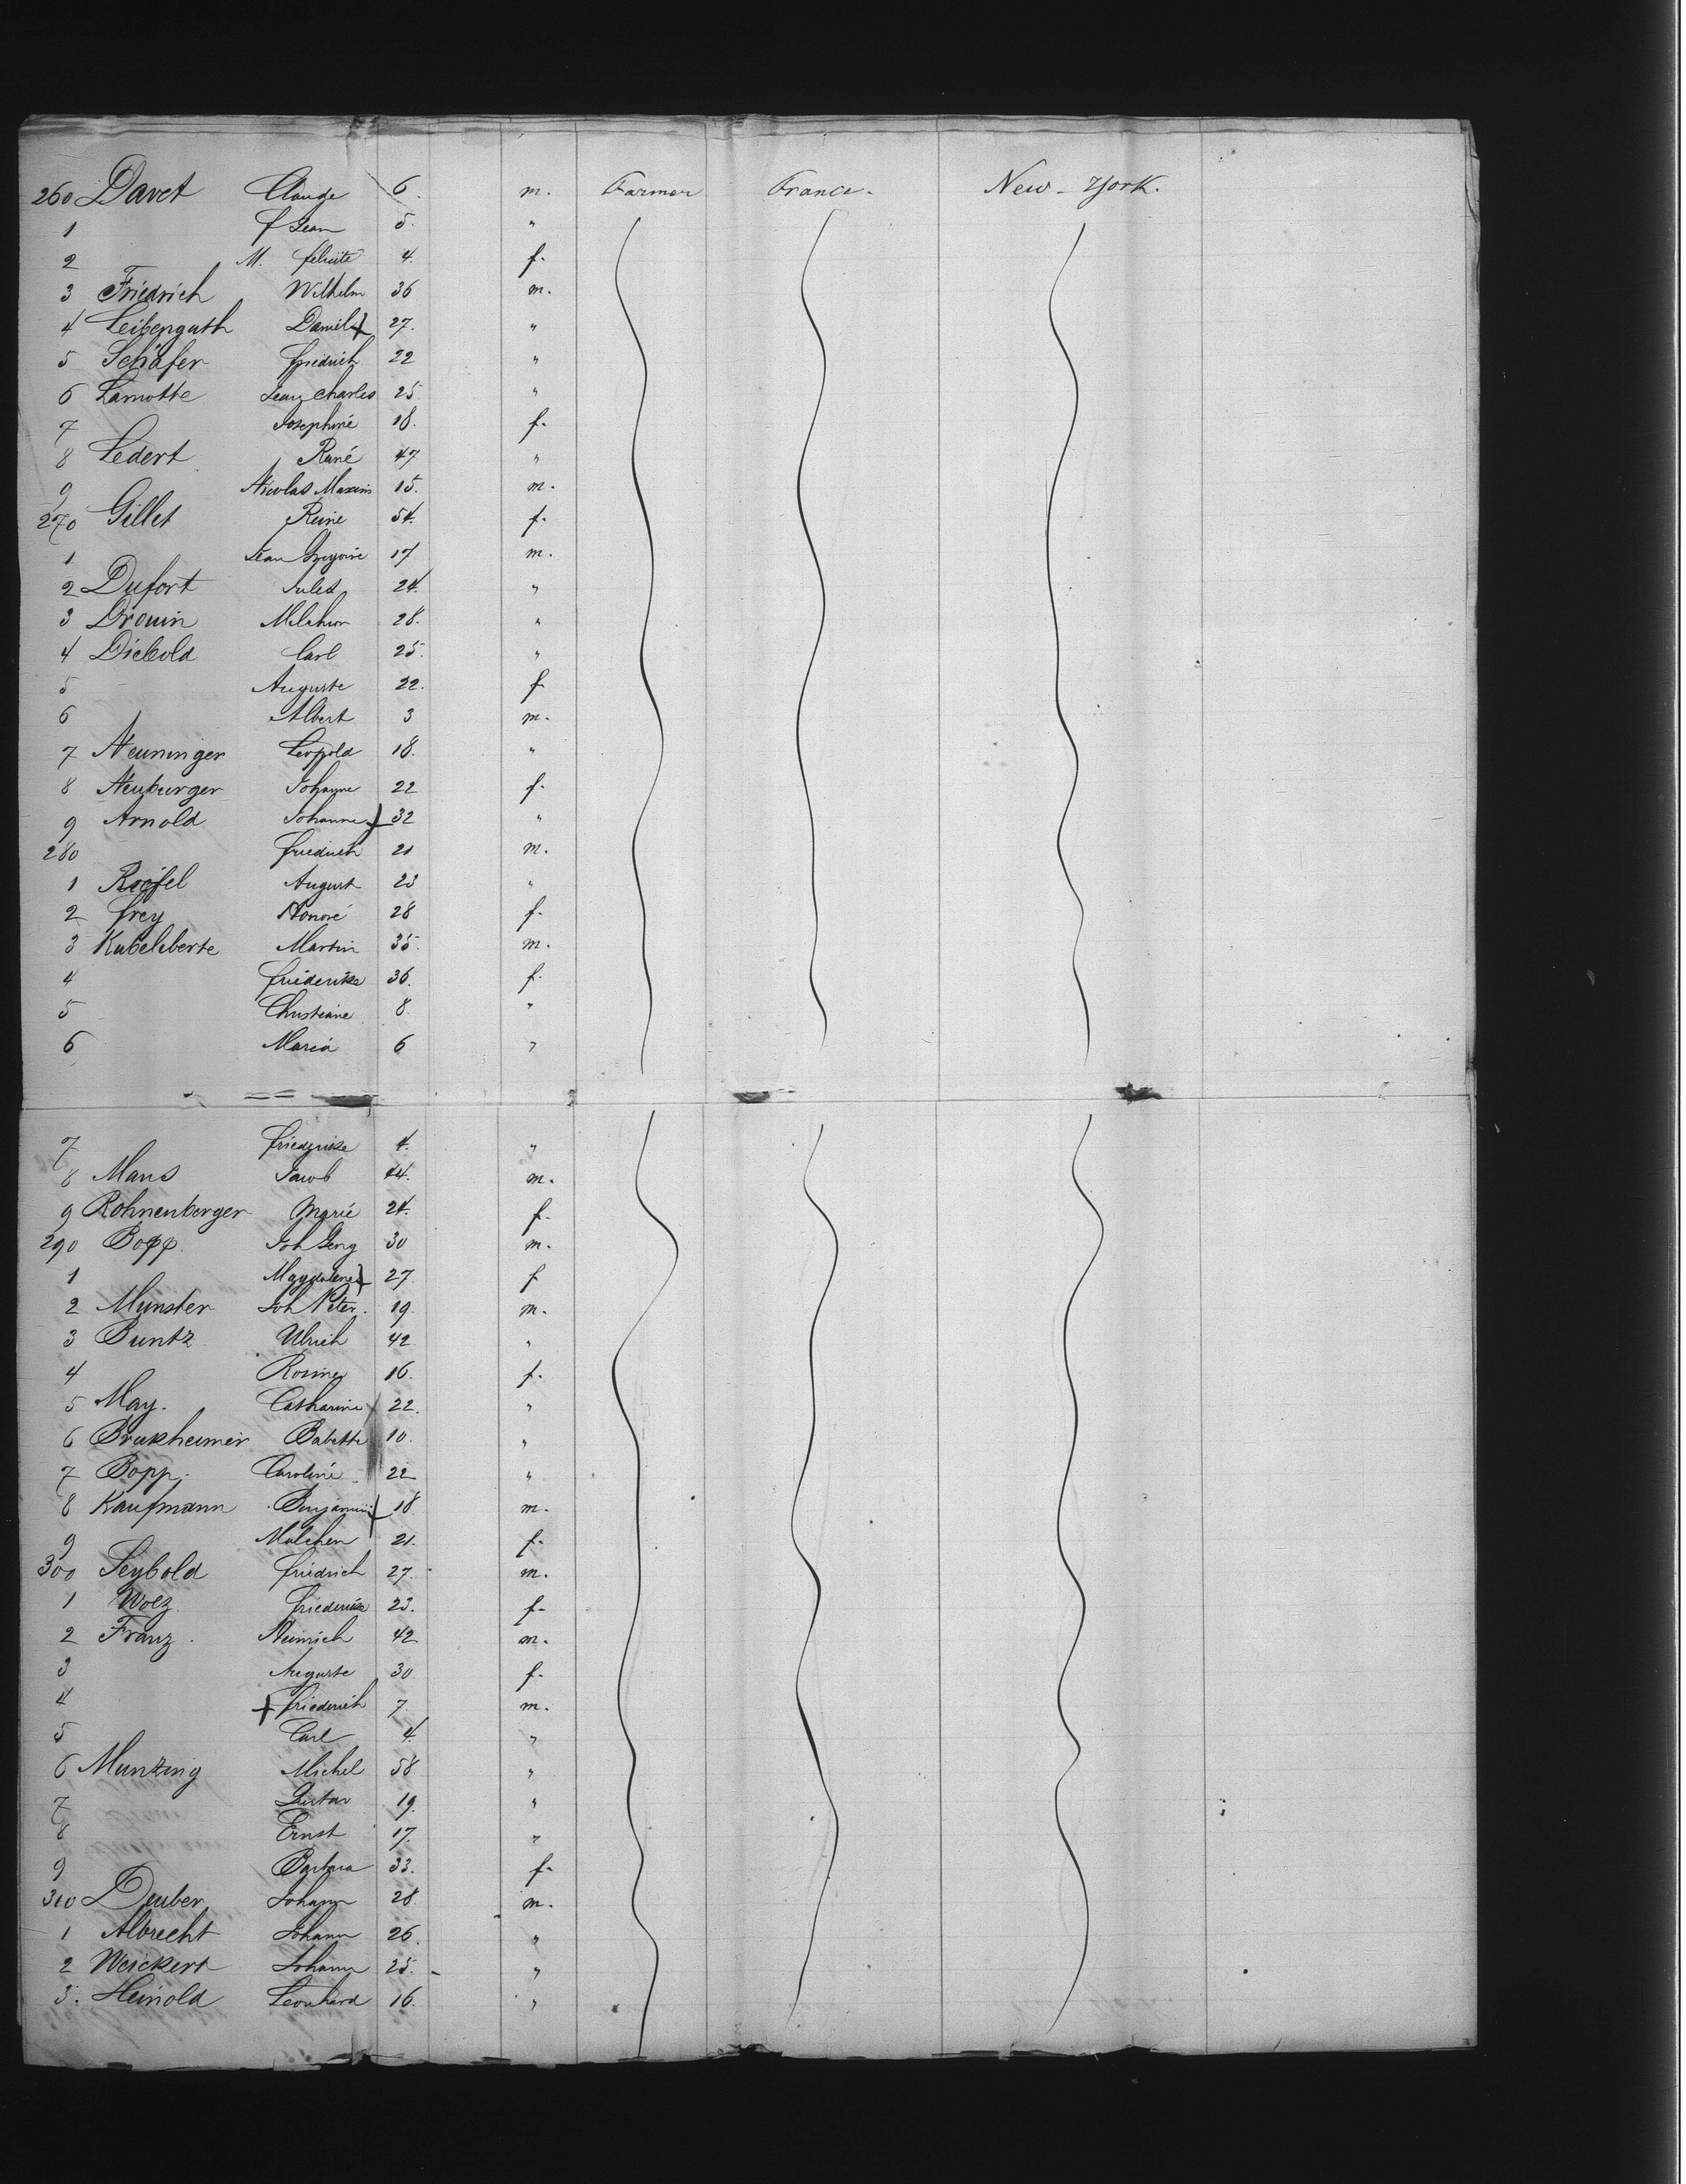 260 Davet Claude 6. m. Farmer France. New-York.
1 Jean 5. "
2 M. felicite 4. f.
3 Friedrich Wilhelm 36 m.
4 Leibenguth Daniel + 27. "
5 Schäfer friedrich 22 "
6 Lamotte Jean Charles 25. "
7 Josephine 18. f.
8 Ledert René 47 "
9 Nicolas Maxim 15. m.
270 Gillet Reine 54. f.
1 Jean Gregoire 17 m.
2 Dufort Jules 24. "
3 Drouin Melchior 28. "
4 Diebold Carl 25. "
5 Auguste 22. f
6 Albert 3 m.
7 Neuninger Leopold 18. "
8 Neuburger Johanne 22 f.
9 Arnold Johanne + 32 "
280 friedrich 21 m.
1 August 23 "
2 frey Honoré 28 f.
3 Martin 35. m.
4 friederike 36. f.
5 Christiane 8. "
6 Maria 6 "
7 friederike 4. "
8 Maus Jacob 44. m.
9 Rohnenberger Marie 24. f.
290 Bopp Joh Georg 30 m.
1 Magdalena + 27. f
2 Munster Joh Peter. 19. m.
3 Buntz Ulrich 42 "
4 Rosine 16. f.
5 May. Catharine 22. "
6 Brukheimer Babette 10. "
7 Bopp. Caroline 22 "
8 Kaufmann Benjamin + 18 m.
9 Malchen 21. f.
300 Seybold friedrich 27. m.
1 Wolz friederike 23. f-
2 Franz. Heinrich 42 m.
3 Auguste 30. f.
4 + friederich 7. m.
5 Carl 4. "
6 Munzing Michel 58. "
7 Gustav 19. "
8 Ernst 17. "
9 Barbara 33. f.
310 Deuber Johann 28 m.
1 Albrecht Johann 26. "
2 Weickert Johann 25. "
3. Heinold Leonhard 16. "